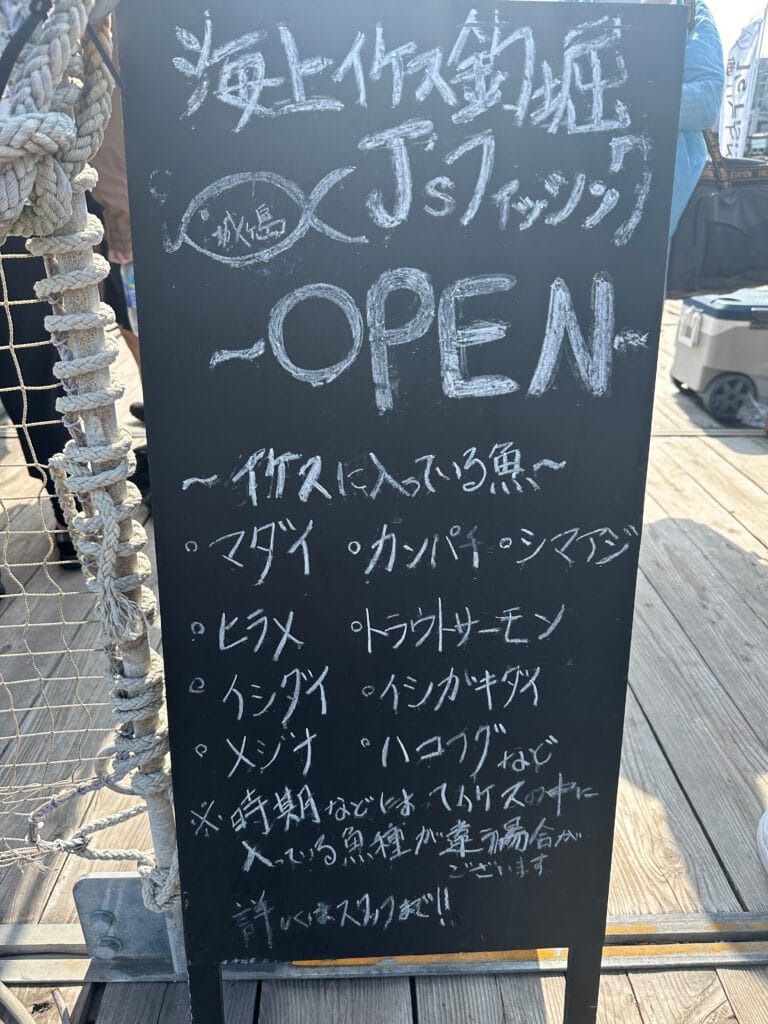 海上イケス釣堀
J'sフィッシング
城ヶ島
~OPEN~
~イケスに入っている魚~
◦マダイ ◦カンパチ ◦シマアジ
◦ヒラメ ◦トラウトサーモン
◦イシダイ ◦イシガキダイ
◦メジナ ◦ハコフグなど
※時期などによってイケスの中に
入っている魚種が違う場合が
ございます
詳しくはスタッフまで!!
STATION